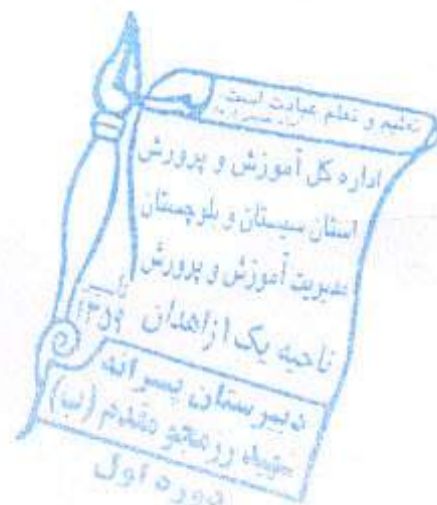 تعلیم و تعلم عبادت است
اداره کل آموزش و پرورش
استان سیستان و بلوچستان
مدیریت آموزش و پرورش
ناحیه یک زاهدان
تأسیس ۱۳۵۹
دبیرستان پسرانه
شهید رزمجو مقدم (ب)
دوره اول